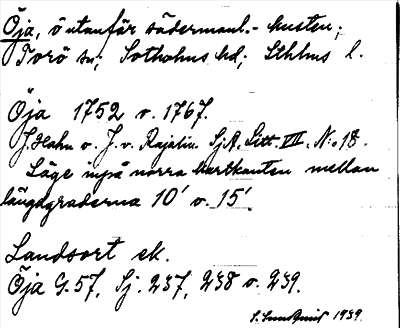 Öja, ö utanför södermanl.-kusten;
Torö sn; Sotholms hd; Sthlms l.
Öja 1752 o. 1767.
J. Hahn o. J. v. Rajalin. Sj.A. Litt. VII, N:o 18.
Läge uppå norra kartkanten mellan
längdgraderna 10' o. 15'.
Landsort ek.
Öja G. 57. Sj. 237, 238 o. 239.
S. Sundquist 1939.